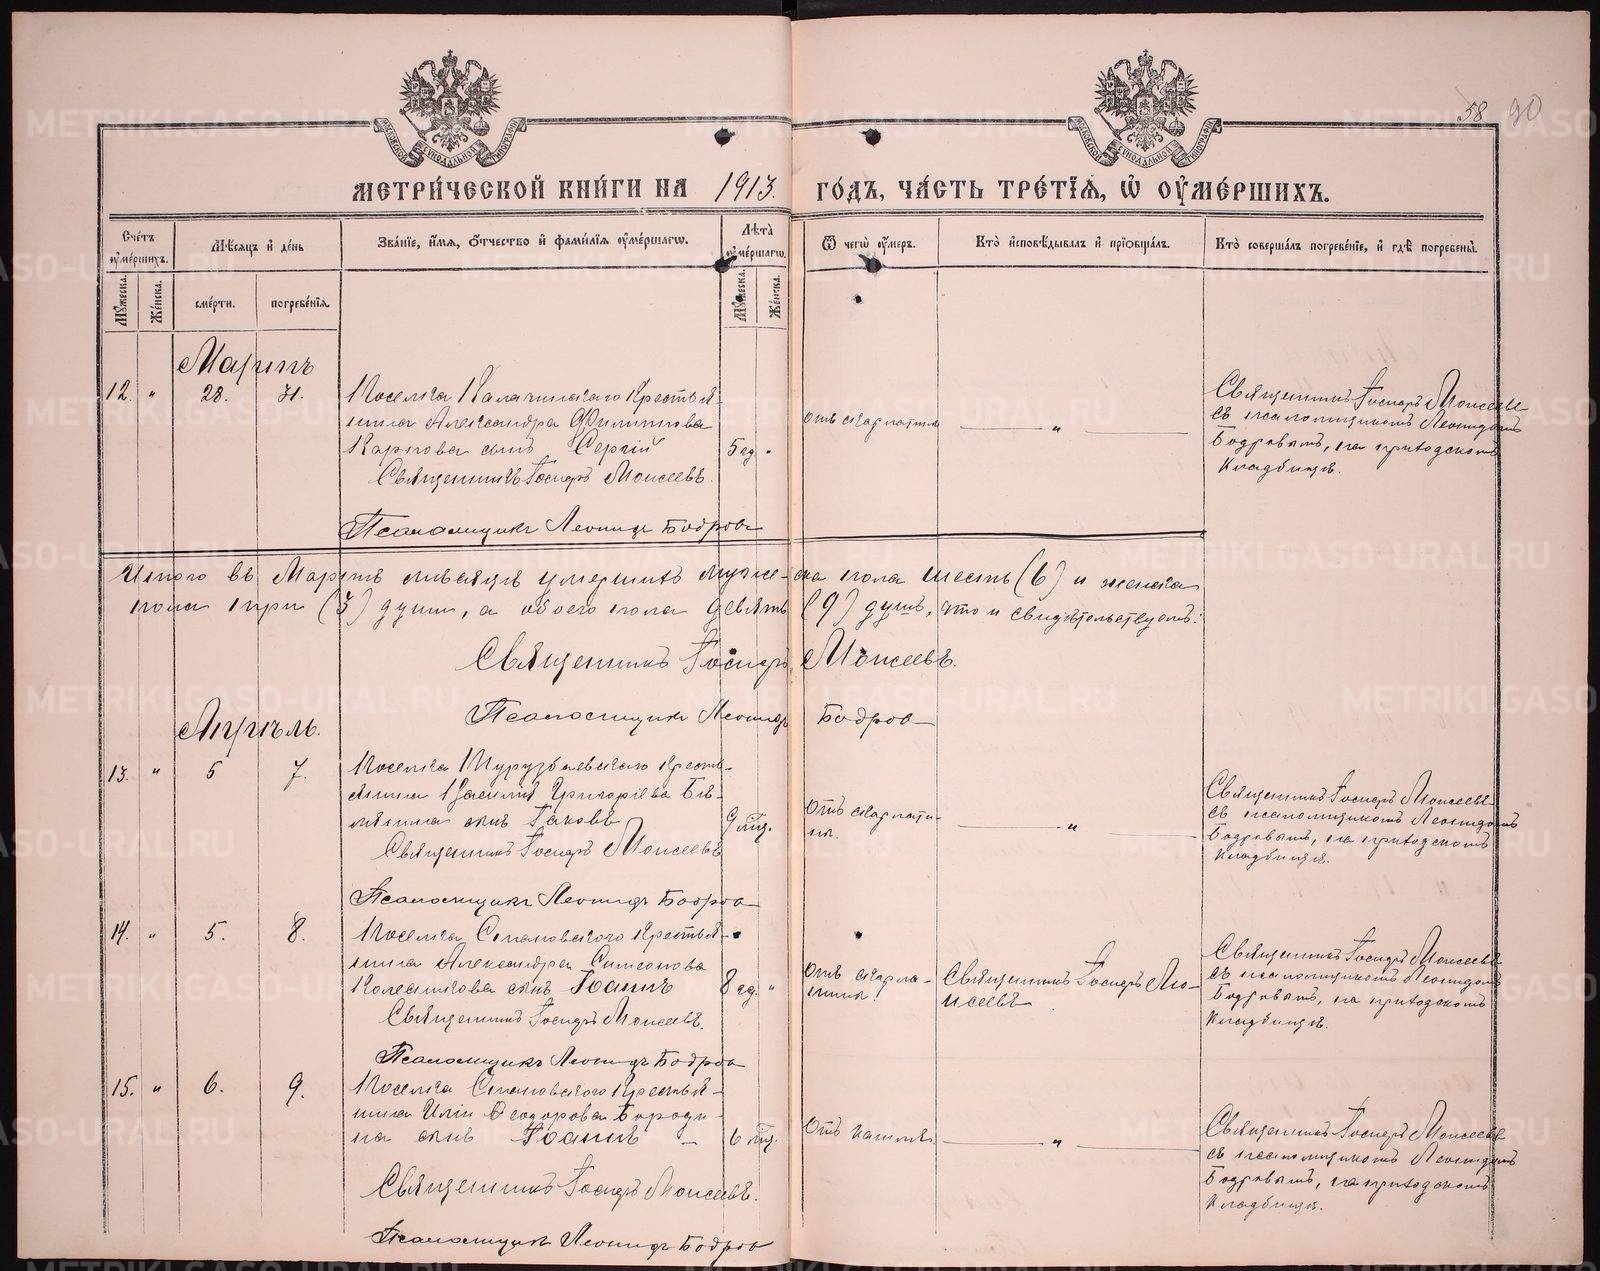 58 90
МОСКОВСКОЙ СУНОДАЛЬНОЙ ТИПОГРАФІИ
МОСКОВСКОЙ СУНОДАЛЬНОЙ ТИПОГРАФІИ
МЕТРИ́ЧЕСКОЙ КНИ́ГИ НА 1913. ГО́ДЪ, ЧА́СТЬ ТРЕ́ТЇѦ, Ѡ҆ ОУ҆МЕ́РШИХЪ.
Сче́тъ оу҆ме́ршихъ.
Мѣ́сяцъ и҆ де́нь
Зва́нїе, и҆́мѧ, ѻ҆́тчество и҆ фами́лїѧ оу҆ме́ршагѡ.
Лѣ́та оу҆ме́ршагѡ.
Ѿ чегѡ̀ оу҆́меръ.
Кто̀ и҆сповѣ́дывалъ и҆ прїѡбща́лъ.
Кто̀ соверша́лъ погребе́нїе, и҆ гдѣ̀ погребены̀.
Мꙋ́жеска. Же́нска.
сме́рти. погребе́нїѧ.
Мꙋ́жеска. Же́нска.
Мартъ
12. " 28. 31.
Поселка Калачинскаго Крестья-
нина Александра Филиппова
Карпова сынъ Сергій 5 год. "
Священникъ Іосифъ Моисеевъ.
Псаломщикъ Леонидъ Бодровъ
отъ скарлатин
"
Священникъ Іосифъ Моисеевъ
съ псаломщикомъ Леонидомъ
Бодровымъ, на приходскомъ
кладбищѣ.
Итого въ Мартѣ мѣсяцѣ умершихъ муже-ска пола шесть (6) и женска
пола три (3) души, а обоего пола девять (9) душъ, что и свидѣтельствуемъ:
Священникъ Іосифъ Моисеевъ.
Псаломщикъ Леонидъ Бодровъ
Апрѣль.
13. " 5 7.
Поселка Турузбаевскаго крестья-
янина Василія Григоріева
сынъ Іаковъ 9 мц.
Священникъ Іосифъ Моисеевъ
Псаломщикъ Леонидъ Бодровъ
Отъ скарлати-
ны.
"
Священникъ Іосифъ Моисеевъ
съ псаломщикомъ Леонидомъ
Бодровымъ, на приходскомъ
кладбищѣ.
14. " 5. 8.
Поселка Становского Крестья-
нина Александра Симеонова
Колесникова сынъ Іоаннъ 8 год. "
Священникъ Іосифъ Моисеевъ.
Псаломщикъ Леонидъ Бодровъ
Отъ скарла-
тины.
Священникъ Іосифъ Мо-
исеевъ
Священникъ Іосифъ Моисеевъ
съ псаломщикомъ Леонидомъ
Бодровымъ, на приходскомъ
кладбищѣ.
15. " 6. 9.
Поселка Становского Крестья-
нина Иліи Ѳеодорова Бороди-
на сынъ Іоаннъ – 6 мц.
Священникъ Іосифъ Моисеевъ.
Псаломщикъ Леонидъ Бодровъ
Отъ кашля.
"
Священникъ Іосифъ Моисеевъ
съ псаломщикомъ Леонидомъ
Бодровымъ, на приходскомъ
кладбищѣ.
METRIKI.GASO-URAL.RU